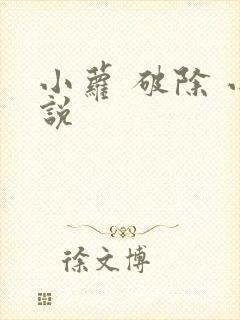 小蘿 破除 小
說
徐文博